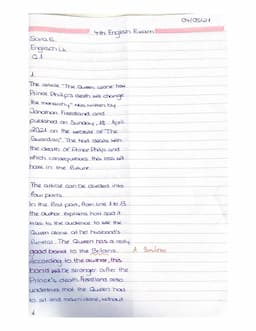 04/05/21
4th English Exam
Sara S.
Englisch Lk
Q1
1
The article "The Queen alone: how
Prince Philip's death will change
the monarchy" was written by
Jonathan Freedland and
published on Sunday, 18. April
2021 on the website of "The
Guardian". The text deals with
the death of Prince Philip and
which consequences this loss will
have in the future.
The article can be divided into
four parts.
In the first part, from line 1 to 13
the author explains how sad it
was to the audience to see the
Queen alone at the husband's
funeral. The Queen has a really
good bond to the Britains.
According to the author, this
bond will be stronger after the
Prince's death. Freedland also
underlines that the Queen had
to sit and mourn alone, without
1